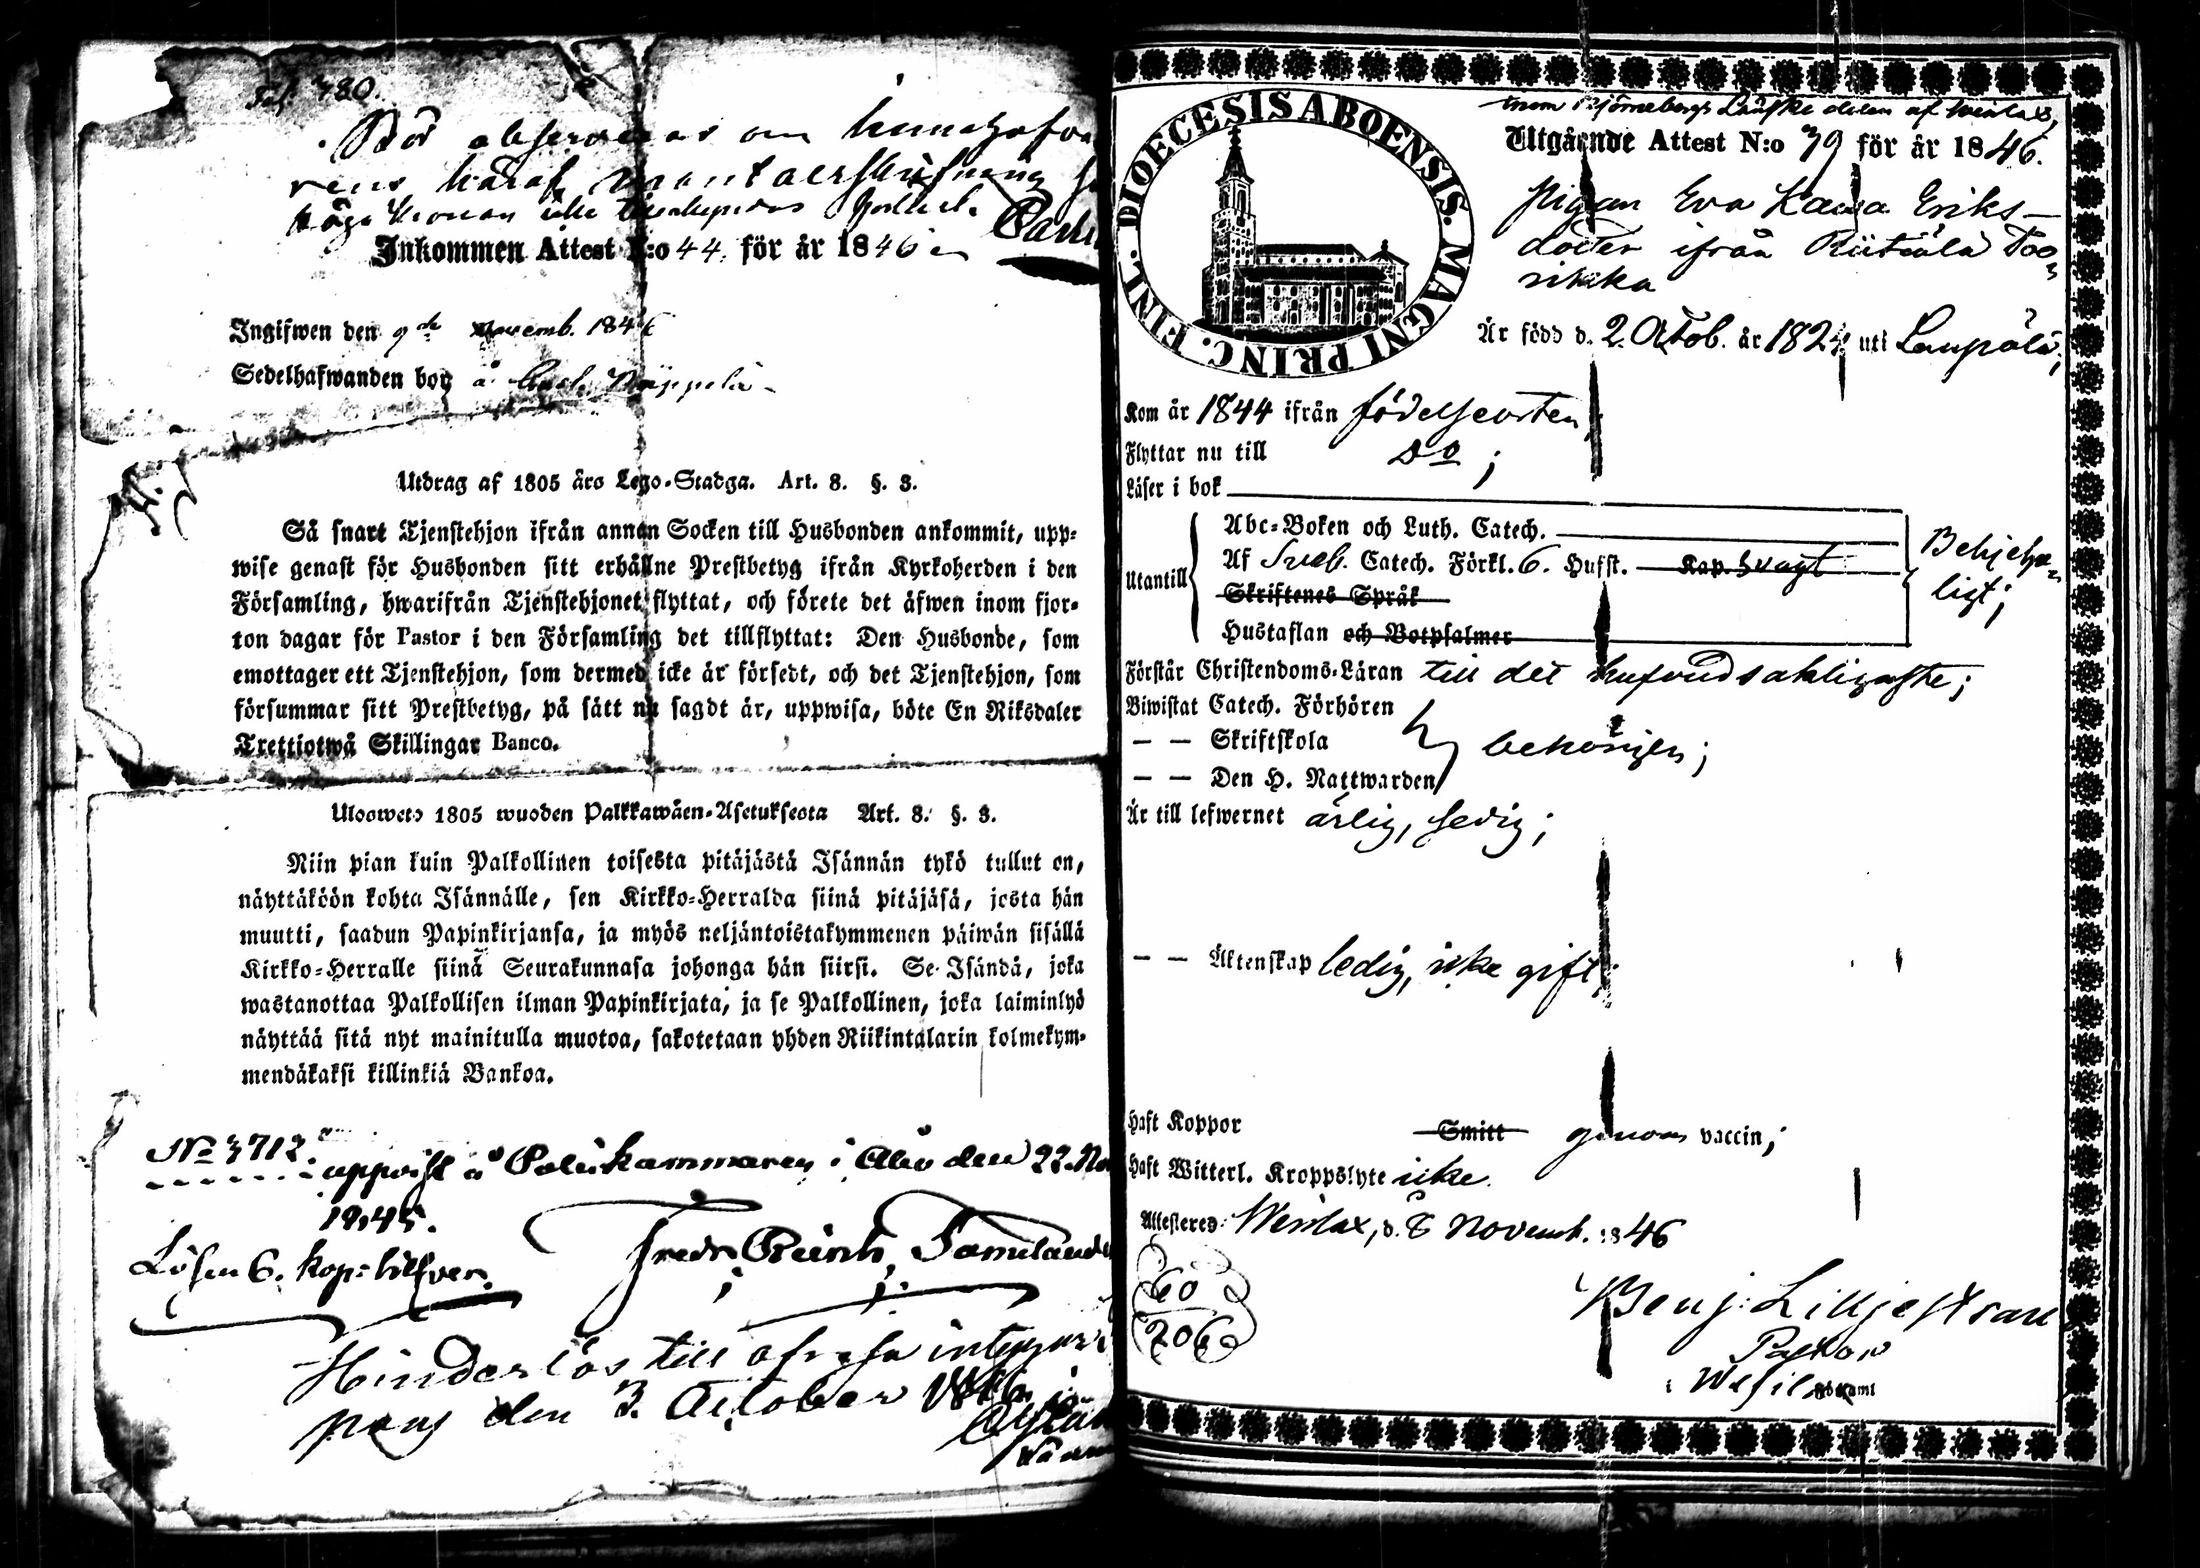 Fol. 780.
Bör observeras om
håraf
Inkommen Attest N:o 44. för år 1846
Ingifwen den 9de Novemb. 1846
Sedelhafwanden bor å
Utdrag af 1805 års Lego-Stadga. Art. 8. §. 3.
Så snart Tjenstehjon ifrån annan Socken till Husbonden ankommit, upp-
wise genast för Husbonden sitt erhållne Prestbetyg ifrån Kyrkoherden i den
Församling, hwarifrån Tjenstehjonet flyttat, och förete det äfwen inom fjor-
ton dagar för Pastor i den Församling det tillflyttat: Den Husbonde, som
emottager ett Tjenstehjon, som dermed icke är försedt, och det Tjenstehjon, som
försummar sitt Prestbetyg, på sätt nu sagdt är, uppwisa, böte En Riksdaler
Trettiotwå Skillingar Banco.
Uloswets 1805 wuoden Palkkawäen-Asetuksesta Art. 8. §. 3.
Niin pian kuin Palkollinen toisesta pitäjästä Isännän tykö tullut on,
näyttäköön kohta Isännälle, sen Kirkko-Herralda siinä pitäjäsä, josta hän
muutti, saadun Papinkirjansa, ja myös neljäntoistakymmenen päiwän sisällä
Kirkko-Herralle siinä Seurakunnasa johonga hän siirsi. Se Isändä, joka
wastanottaa Palkollisen ilman Papinkirjata, ja se Palkollinen, joka laiminlyö
näyttää sitä nyt mainitulla muotoa, sakotetaan yhden Riikintalarin kolmekym-
mendäkaksi killinkiä Bankoa.
No 3712.
uppvist å Poliskammaren i Åbo den 22. No
1845.
Lösen 6. kop: silfver.
Fredr. Reinh.
Hinderlös till afresa
den 3. October 1846
DIOECESIS ABOENSIS. MAGNI PRINC. FINL.
inom Björneborgs Länske delen af
Utgående Attest N:o 79 för år 1846.
Pigan Eva Kaisa Eriks-
doter ifrån Riitiälä
Är född d. 2. Octob. år 1824 uti
Kom år 1844 ifrån födelseorten
Flyttar nu till Do;
Läser i bok
Utantill
Abc-Boken och Luth. Catech.
Af Sveb. Catech. Förkl. 6. Hufst. Kap. svagt
Skriftenes Språk
Hustaflan och Botpsalmer
Förstår Christendoms-Läran till det hufvudsakligaste;
Biwistat Catech. Förhören
— — Skriftskola behörigen;
— — Den H. Nattwarden
Är till lefwernet ärlig, sedig;
— — Äktenskap ledig, icke gift;
Haft Koppor Smitt genom vaccin;
Haft Witterl. Kroppslyte icke.
Attesteres: Wesilax, d. 8 Novemb. 1846
60
206
Benj: Lilljestran
Pastor
i Wesilax Församl